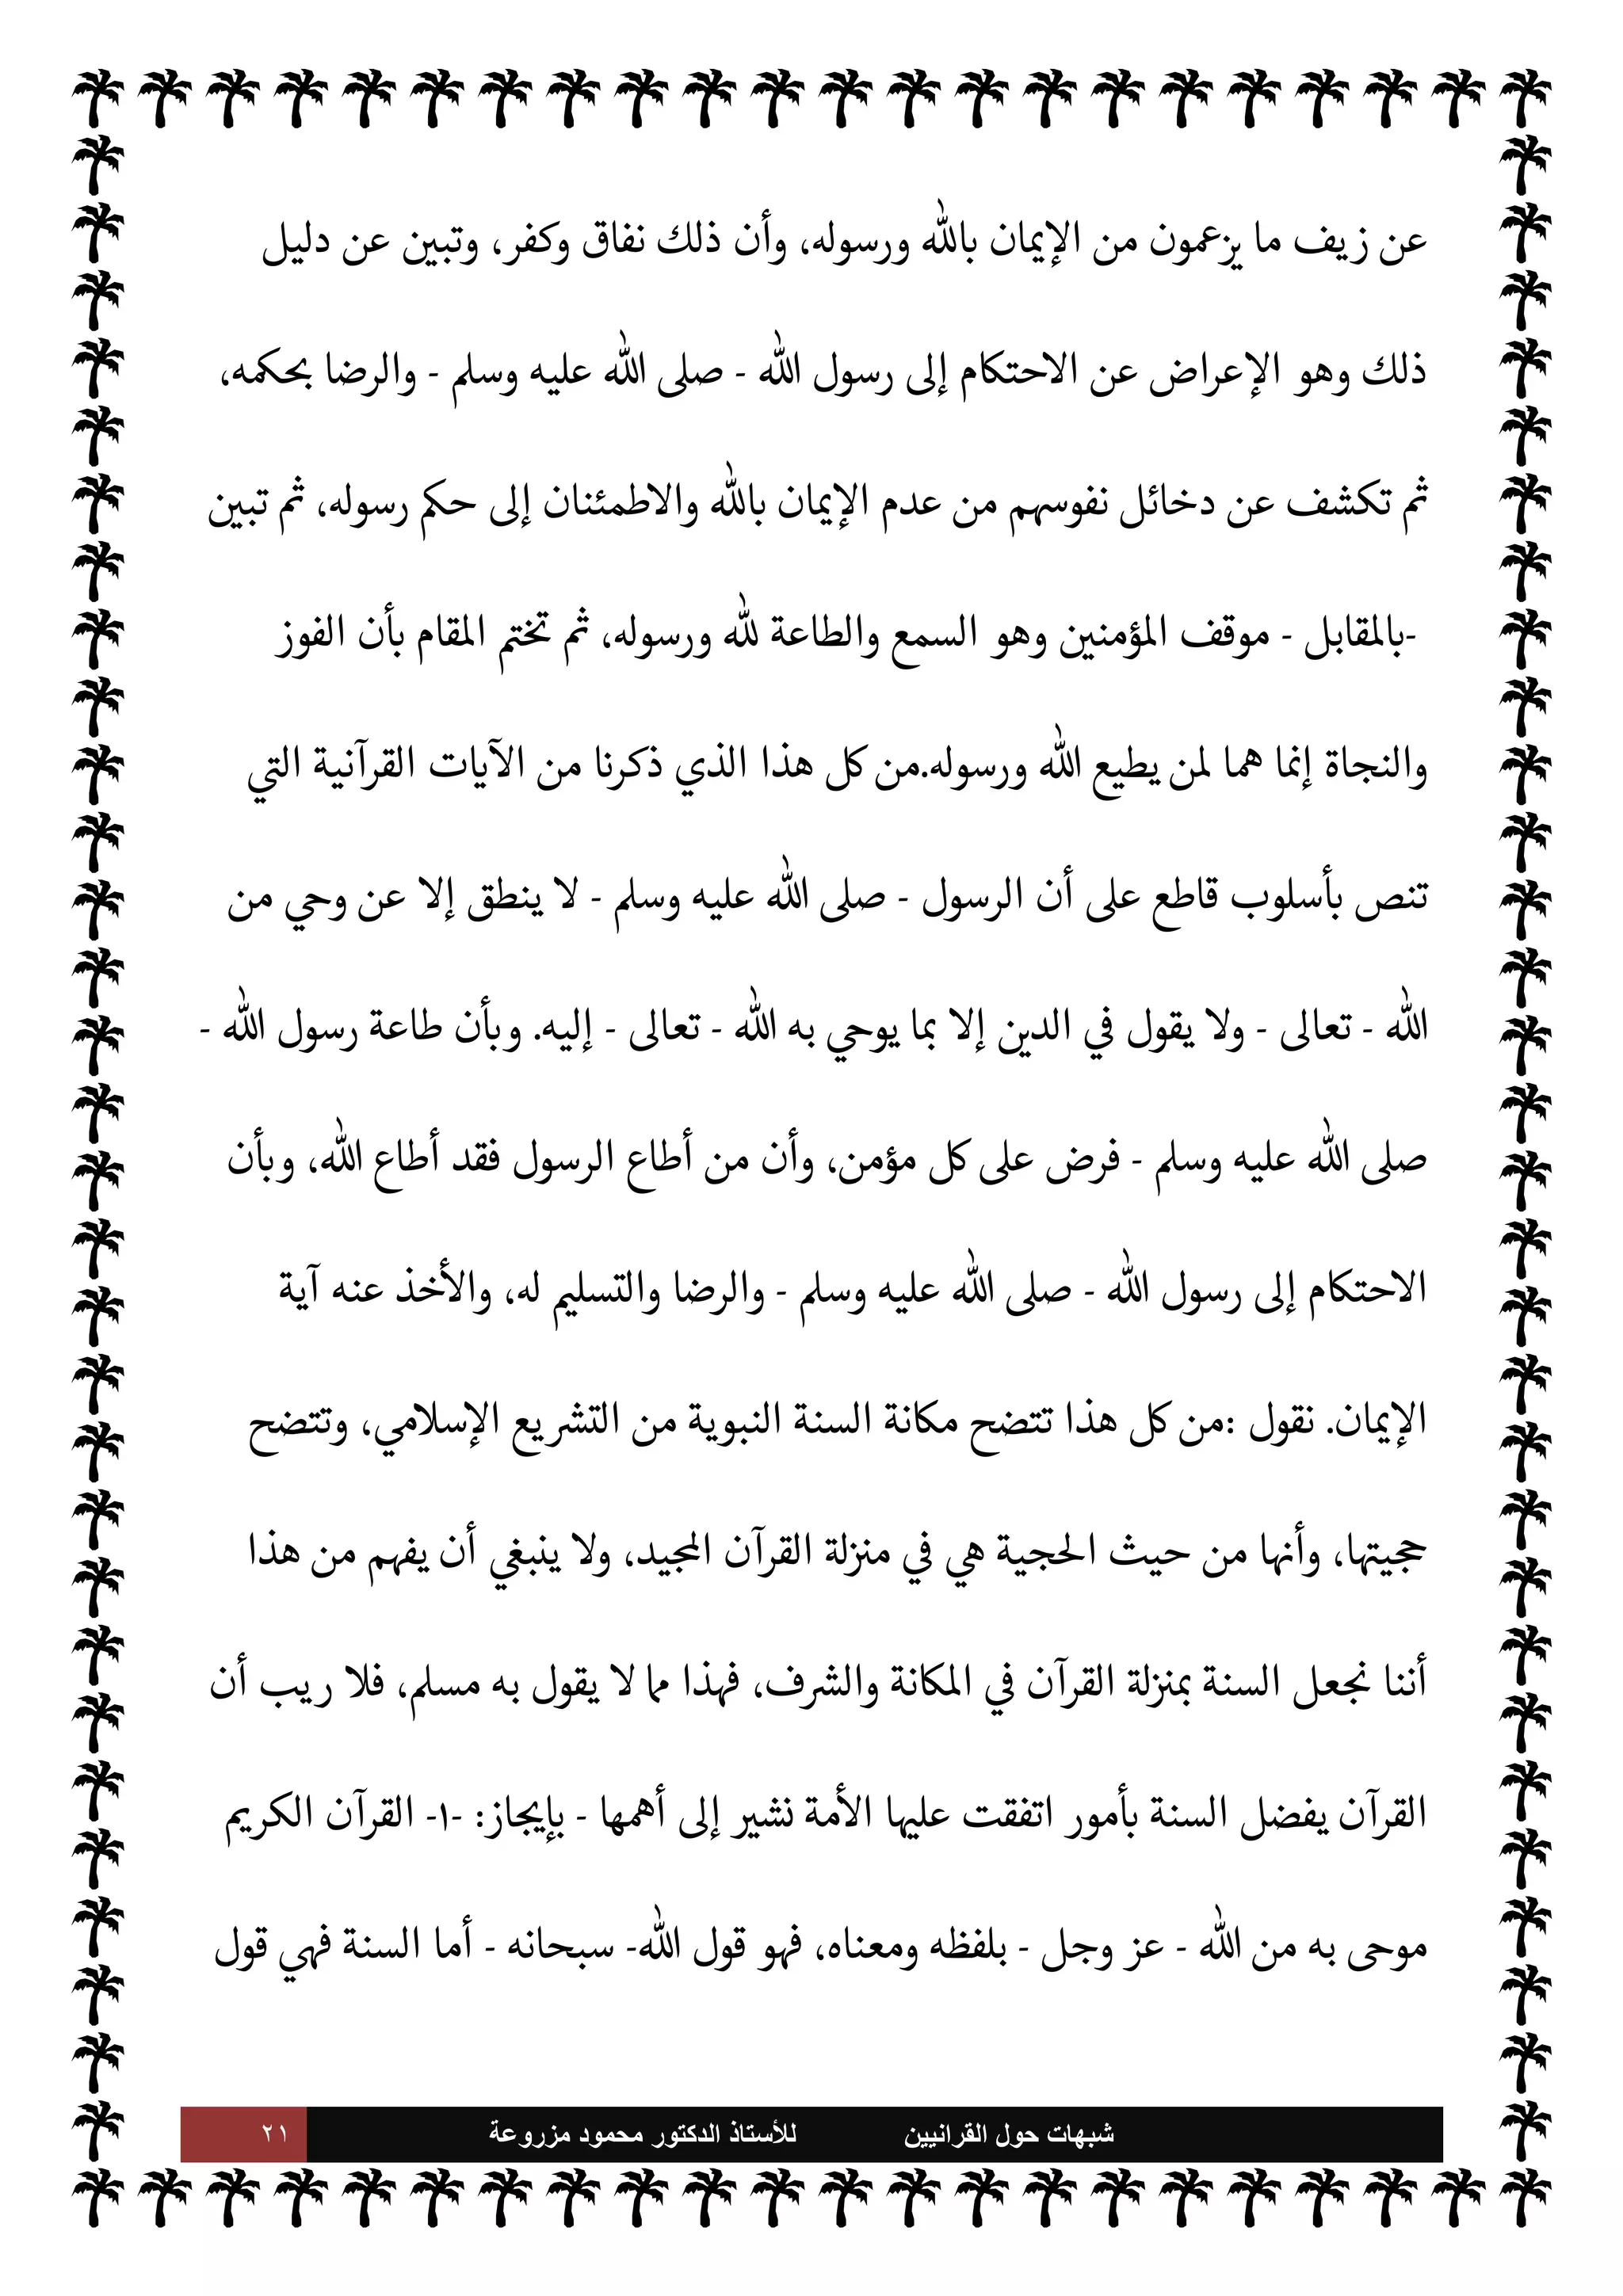 عن زيف ما يزعمون من الإيمان بالله ورسوله، وأن ذلك نفاق وكفر، وتبين عن دليل
ذلك وهو الإعراض عن الاحتكام إلى رسول الله - صلى الله عليه وسلم - والرضا بحكمه،
ثم تكشف عن دخائل نفوسهم من عدم الإيمان بالله والاطمئنان إلى حكم رسوله، ثم تبين
-بالمقابل - موقف المؤمنين وهو السمع والطاعة لله ورسوله، ثم تختم المقام بأن الفوز
والنجاة إنما هما لمن يطيع الله ورسوله.من كل هذا الذي ذكرنا من الآيات القرآنية التي
تنص بأسلوب قاطع على أن الرسول - صلى الله عليه وسلم - لا ينطق إلا عن وحي من
الله - تعالى - ولا يقول في الدين إلا بما يوحي به الله - تعالى - إليه. وبأن طاعة رسول الله -
صلى الله عليه وسلم - فرض على كل مؤمن، وأن من أطاع الرسول فقد أطاع الله، وبأن
الاحتكام إلى رسول الله - صلى الله عليه وسلم - والرضا والتسليم له، والأخذ عنه آية
الإيمان. نقول :من كل هذا تتضح مكانة السنة النبوية من التشريع الإسلامي، وتتضح
حجيتها، وأنها من حيث الحجية هي في منزلة القرآن المجيد، ولا ينبغي أن يفهم من هذا
أننا نجعل السنة بمنزلة القرآن في المكانة والشرف، فهذا مما لا يقول به مسلم، فلا ريب أن
القرآن يفضل السنة بأمور اتفقت عليها الأمة نشير إلى أهمها - بإيجاز: -١- القرآن الكريم
موحى به من الله - عز وجل - بلفظه ومعناه، فهو قول الله- سبحانه - أما السنة فهي قول
شبهات حول القرانيين للأستاذ الدكتور محمود مزروعة ٢١